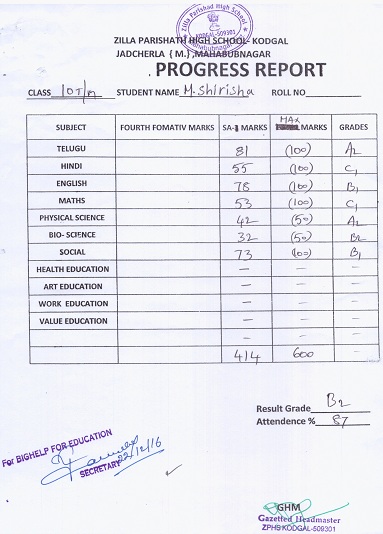 Zilla Parishad High School
KODGAL-509301
Mahabubnagar
ZILLA PARISHATH HIGH SCHOOL- KODGAL
JADCHERLA ( M ) ,MAHABUBNAGAR
PROGRESS REPORT
CLASS 10T/M STUDENT NAME M.Shirisha ROLL NO
SUBJECT FOURTH FOMATIV MARKS SA-1 MARKS MAX MARKS GRADES
TELUGU 81 (100) A2
HINDI 55 (100) C1
ENGLISH 78 (100) B1
MATHS 53 (100) C1
PHYSICAL SCIENCE 42 (50) A2
BIO- SCIENCE 32 (50) B2
SOCIAL 73 (100) B1
HEALTH EDUCATION — — —
ART EDUCATION — — —
WORK EDUCATION — — —
VALUE EDUCATION — — —
— — —
414 600 —
Result Grade B2
Attendence % 87
For BIGHELP FOR EDUCATION
22/12/16
SECRETARY
GHM
Gazetted Headmaster
ZPHS KODGAL-509301